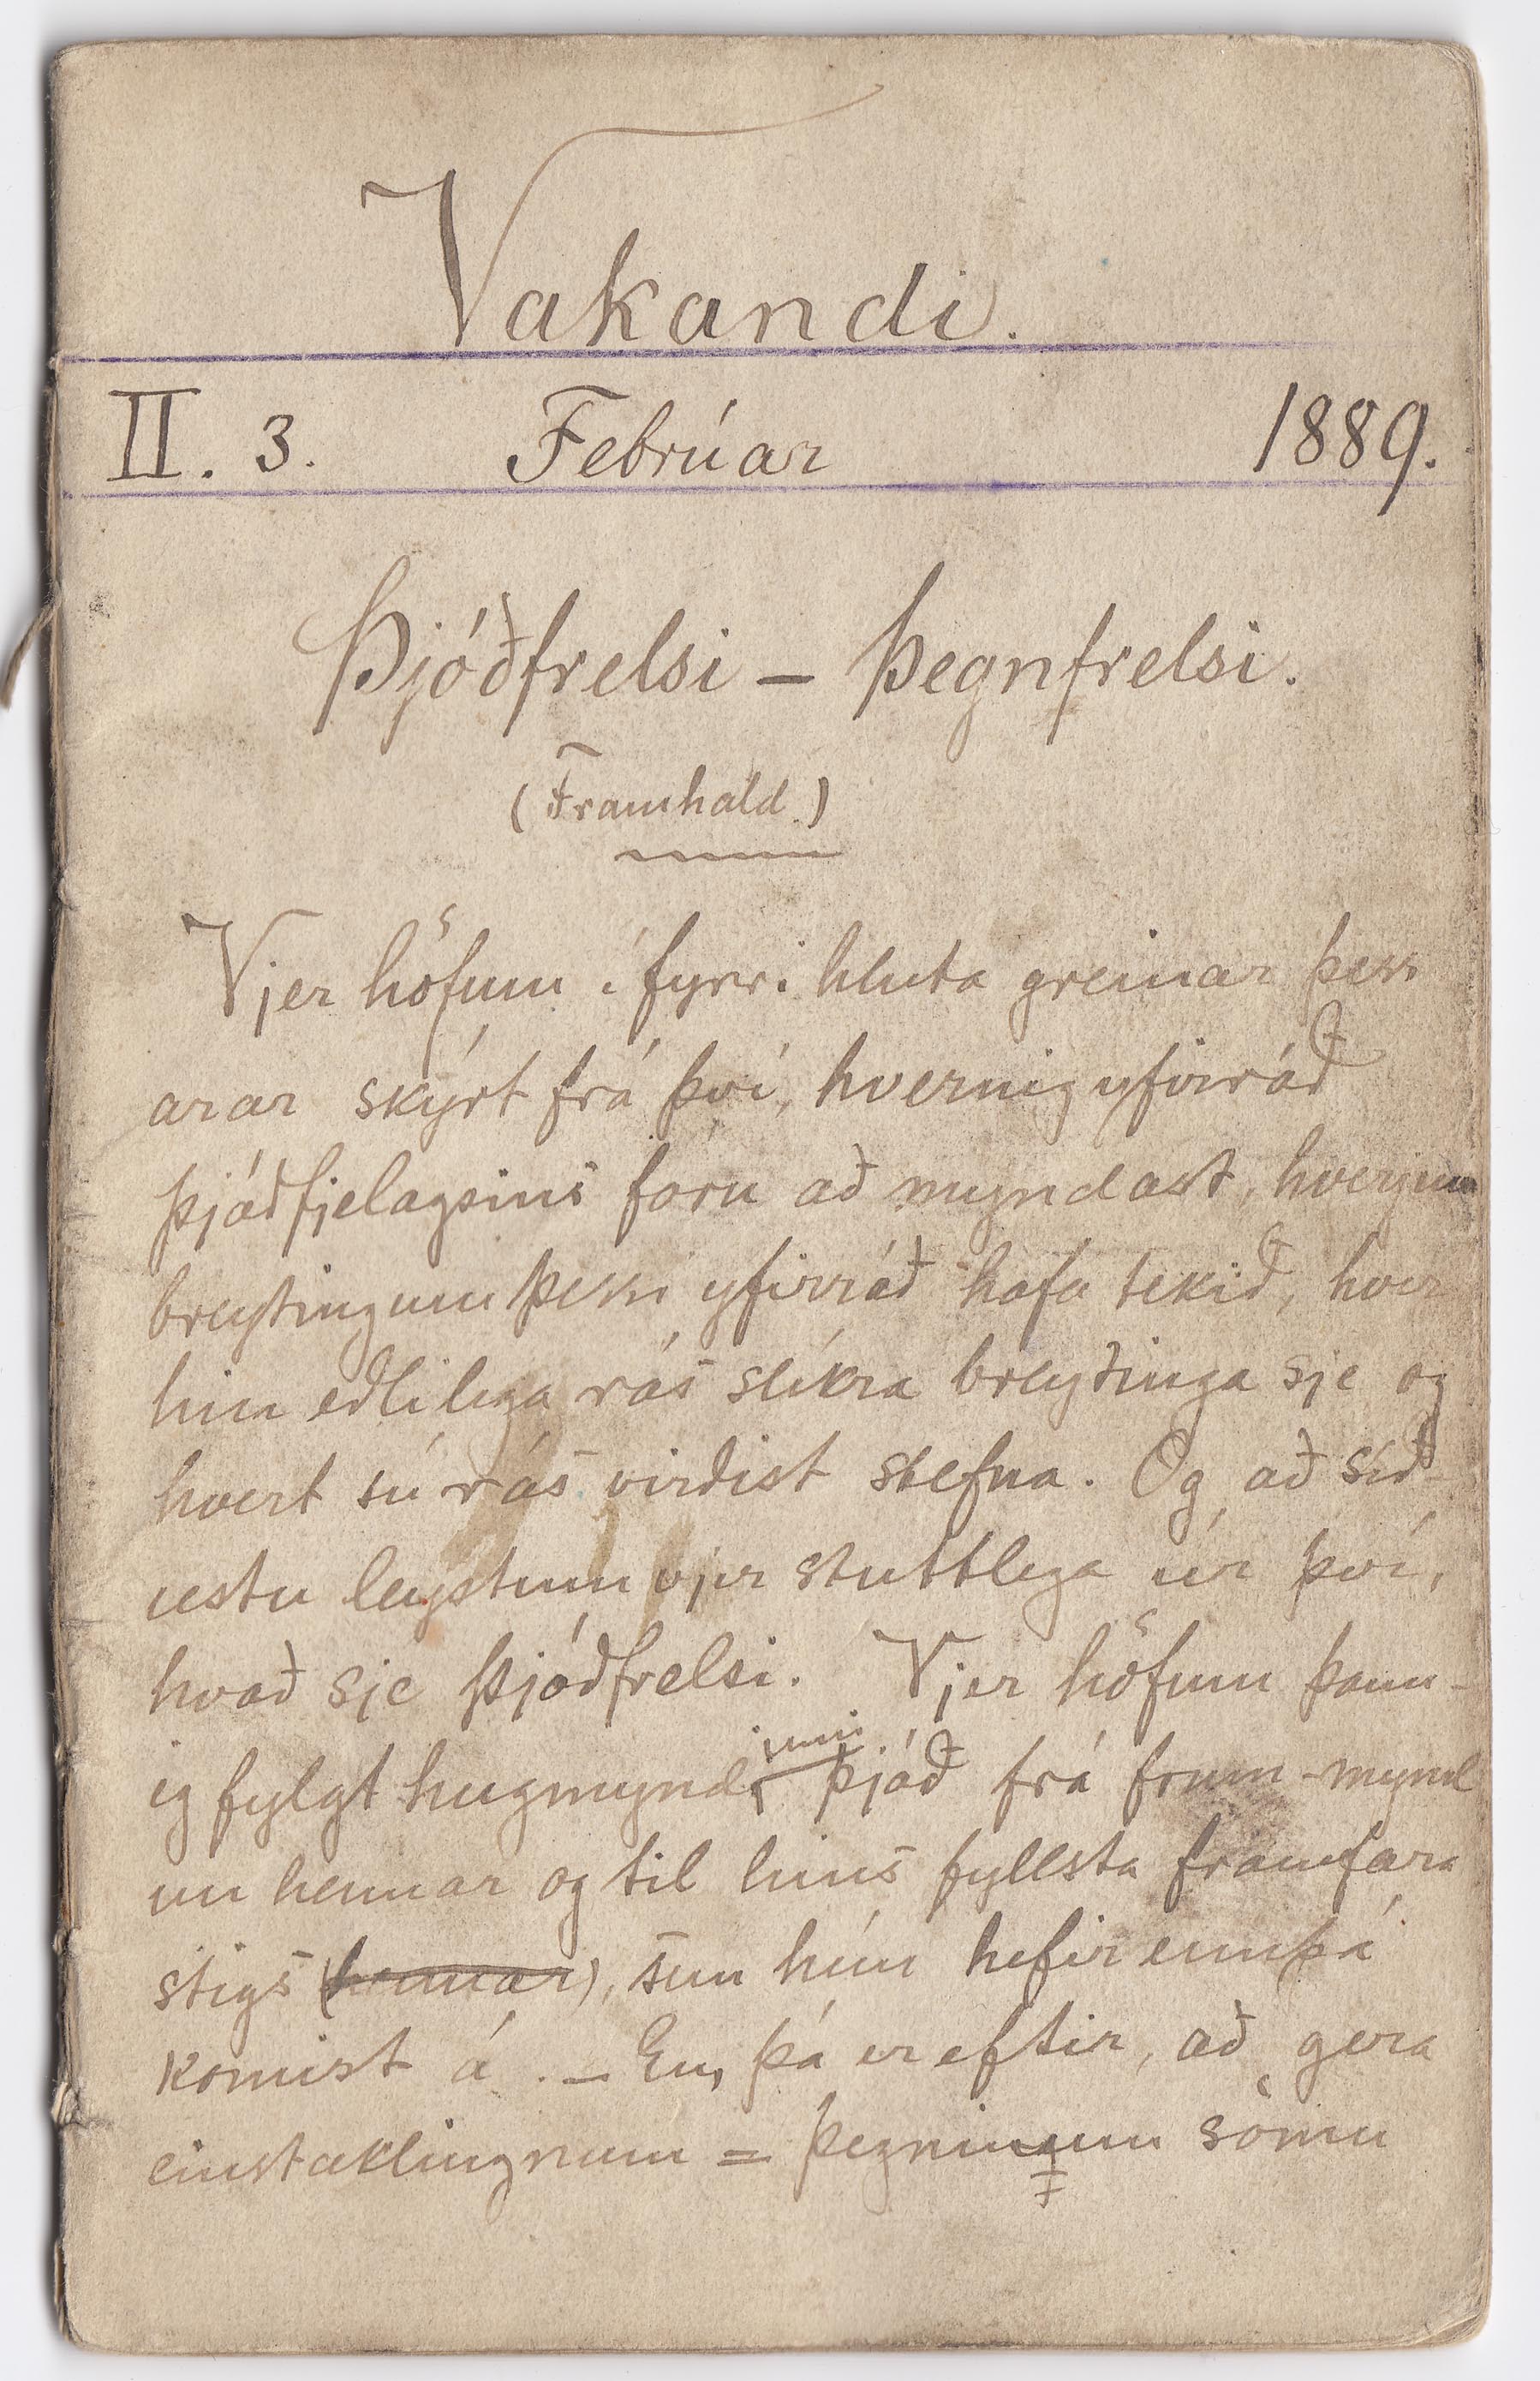 Vakandi.
II. 3. Febrúar 1889.
Þjóðfrelsi – Þegnfrelsi.
(Framhald.)
Vjer höfum í fyrri hluta greinar þess
arar skýrt frá því, hvernig yfirráð
þjóðfjelagsins fóru að myndast, hverjum
breytingum þessi yfirráð hafa tekið, hver
hin eðlilega rás slíkra breytinga sje og
hvert sú rás virðist stefna. Og að síð-
ustu leystum vjer stuttlega úr því,
hvað sje þjóðfrelsi. Vjer höfum þann-
ig fylgt hugmyndinni þjóð frá frum-mynd
un hennar og til hins fyllsta framfara
stigs (hennar), sem hún hefir ennþá
komist á. – En, þá er eftir, að gera
einstaklingnum = þegninum sömu